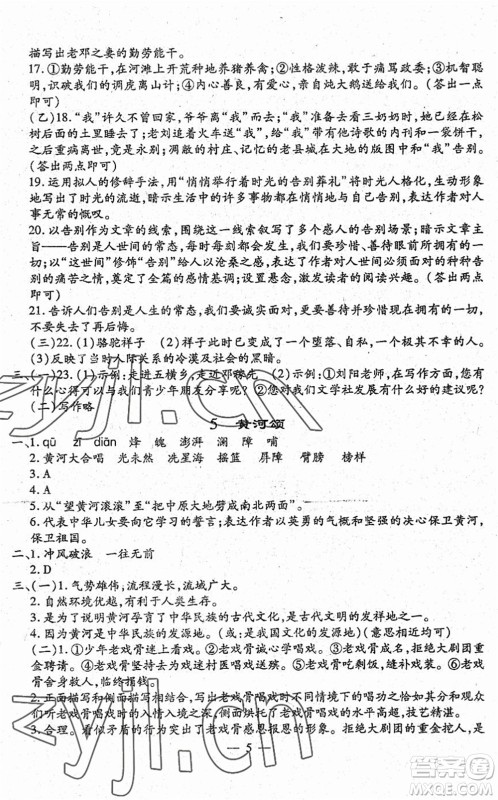 描写出老邓之妻的勤劳能干。
17. ①勤劳能干，在河滩上开荒种地养猪养禽；②性格泼辣，敢于痛骂政委；③机智聪
明，识破我们的调虎离山计；④内心善良，有亲自炖大鹅送给我们。（答出一点
即可）
(乙)18. “我”许久不曾回家，爷爷离“我”而去；“我”准备去看三奶奶时，她已经在松
树后面的土里睡去了；老刘追着火车送“我”，给“我”带有他诗歌的内刊和一袋饼干，
谁知病后离世，竟是永别；凋敝的村庄、记忆里的老县城在大地的版图中和“我”告别。
（答出两点即可）
19. 运用拟人的修辞手法，用“悄悄举行着时光的告别葬礼”将时光人格化，生动形象
地写出了时光的流逝，暗示生活中的许多事物都在悄悄地与自己告别，表达作者对人事
无常的慨叹。
20. 以告别作为文章的线索，叙写多个感人的告别场景；暗示文章主
旨——告别是人世间的常态，告别是人世间的常态，我们要珍惜、善待
我们的拥有；以“这世间”修饰“告别”，给人以沧桑之感，表达作者对亲人离别
的痛苦之情，奠定了全篇的感情基调；设置悬念，激发读者的阅读兴趣。（答出两点
即可）
21. 告诉人们告别是人世间的常态，我们要坦然面对，更要善待并珍惜我们的拥有，
不要失去了再后悔。
(三)22. (1)骆驼祥子 (2)祥子此时已变成了一个堕落、自私的人。
(3)反映了当时人际关系的冷漠及社会的黑暗。
三、(一)23. (1)示例：走进五横乡，走近邓稼先 (2)示例：①刘阳老师，在写作方面，您有
什么心得可以与我们青少年朋友分享呢？②您对我们文学社发展有什么好的建议呢？
(二)写作略
5 黄河颂
一、1. qū zǐ diān 烽 魄 澎湃 澜 障 哺
2. 黄河大合唱 光未然 冼星海 摇篮 屏障 臂膀 榜样
3. A
4. A
5. 从“望黄河滚滚”至“把中原大地劈成南北两面”。
6. 代表中华儿女要向它学习的誓言；表达作者以英勇的气概和坚强的决心保卫黄河，
保卫祖国。
二、1. 冲风破浪 一往无前
2. D
三、(一)1. 气势雄伟；流程漫长，流域广大。
2. 自然环境优越，有利于人类生存。
3. 是为了说明黄河孕育了中华民族的古代文化，是古代文明的发祥地之一。
4. 因为黄河是中华民族的发源地。(或：是我国文化的发源地)（意思相近均可）
(二)1. ①少年老戏骨迷上看戏。②老戏骨诚心学唱戏。③老戏骨成名，拒绝大剧团重
金聘请。④老戏骨坚持为村民唱戏。⑤老戏骨吃剩饭，缝补戏装。⑥老戏骨
临终。
2. 正面描写和侧面描写相结合，写出了老戏骨唱戏时不同情境下的唱功和观众
们听老戏骨唱戏时的入情入境，突出了老戏骨唱戏的水平高超，技艺精湛。
3. 合理。看似矛盾的行为表现出老戏骨感恩报恩的形象。拒绝大剧团的重金挖人，是
— 5 —
zyjl.cn
答案圈
MXQE.COM